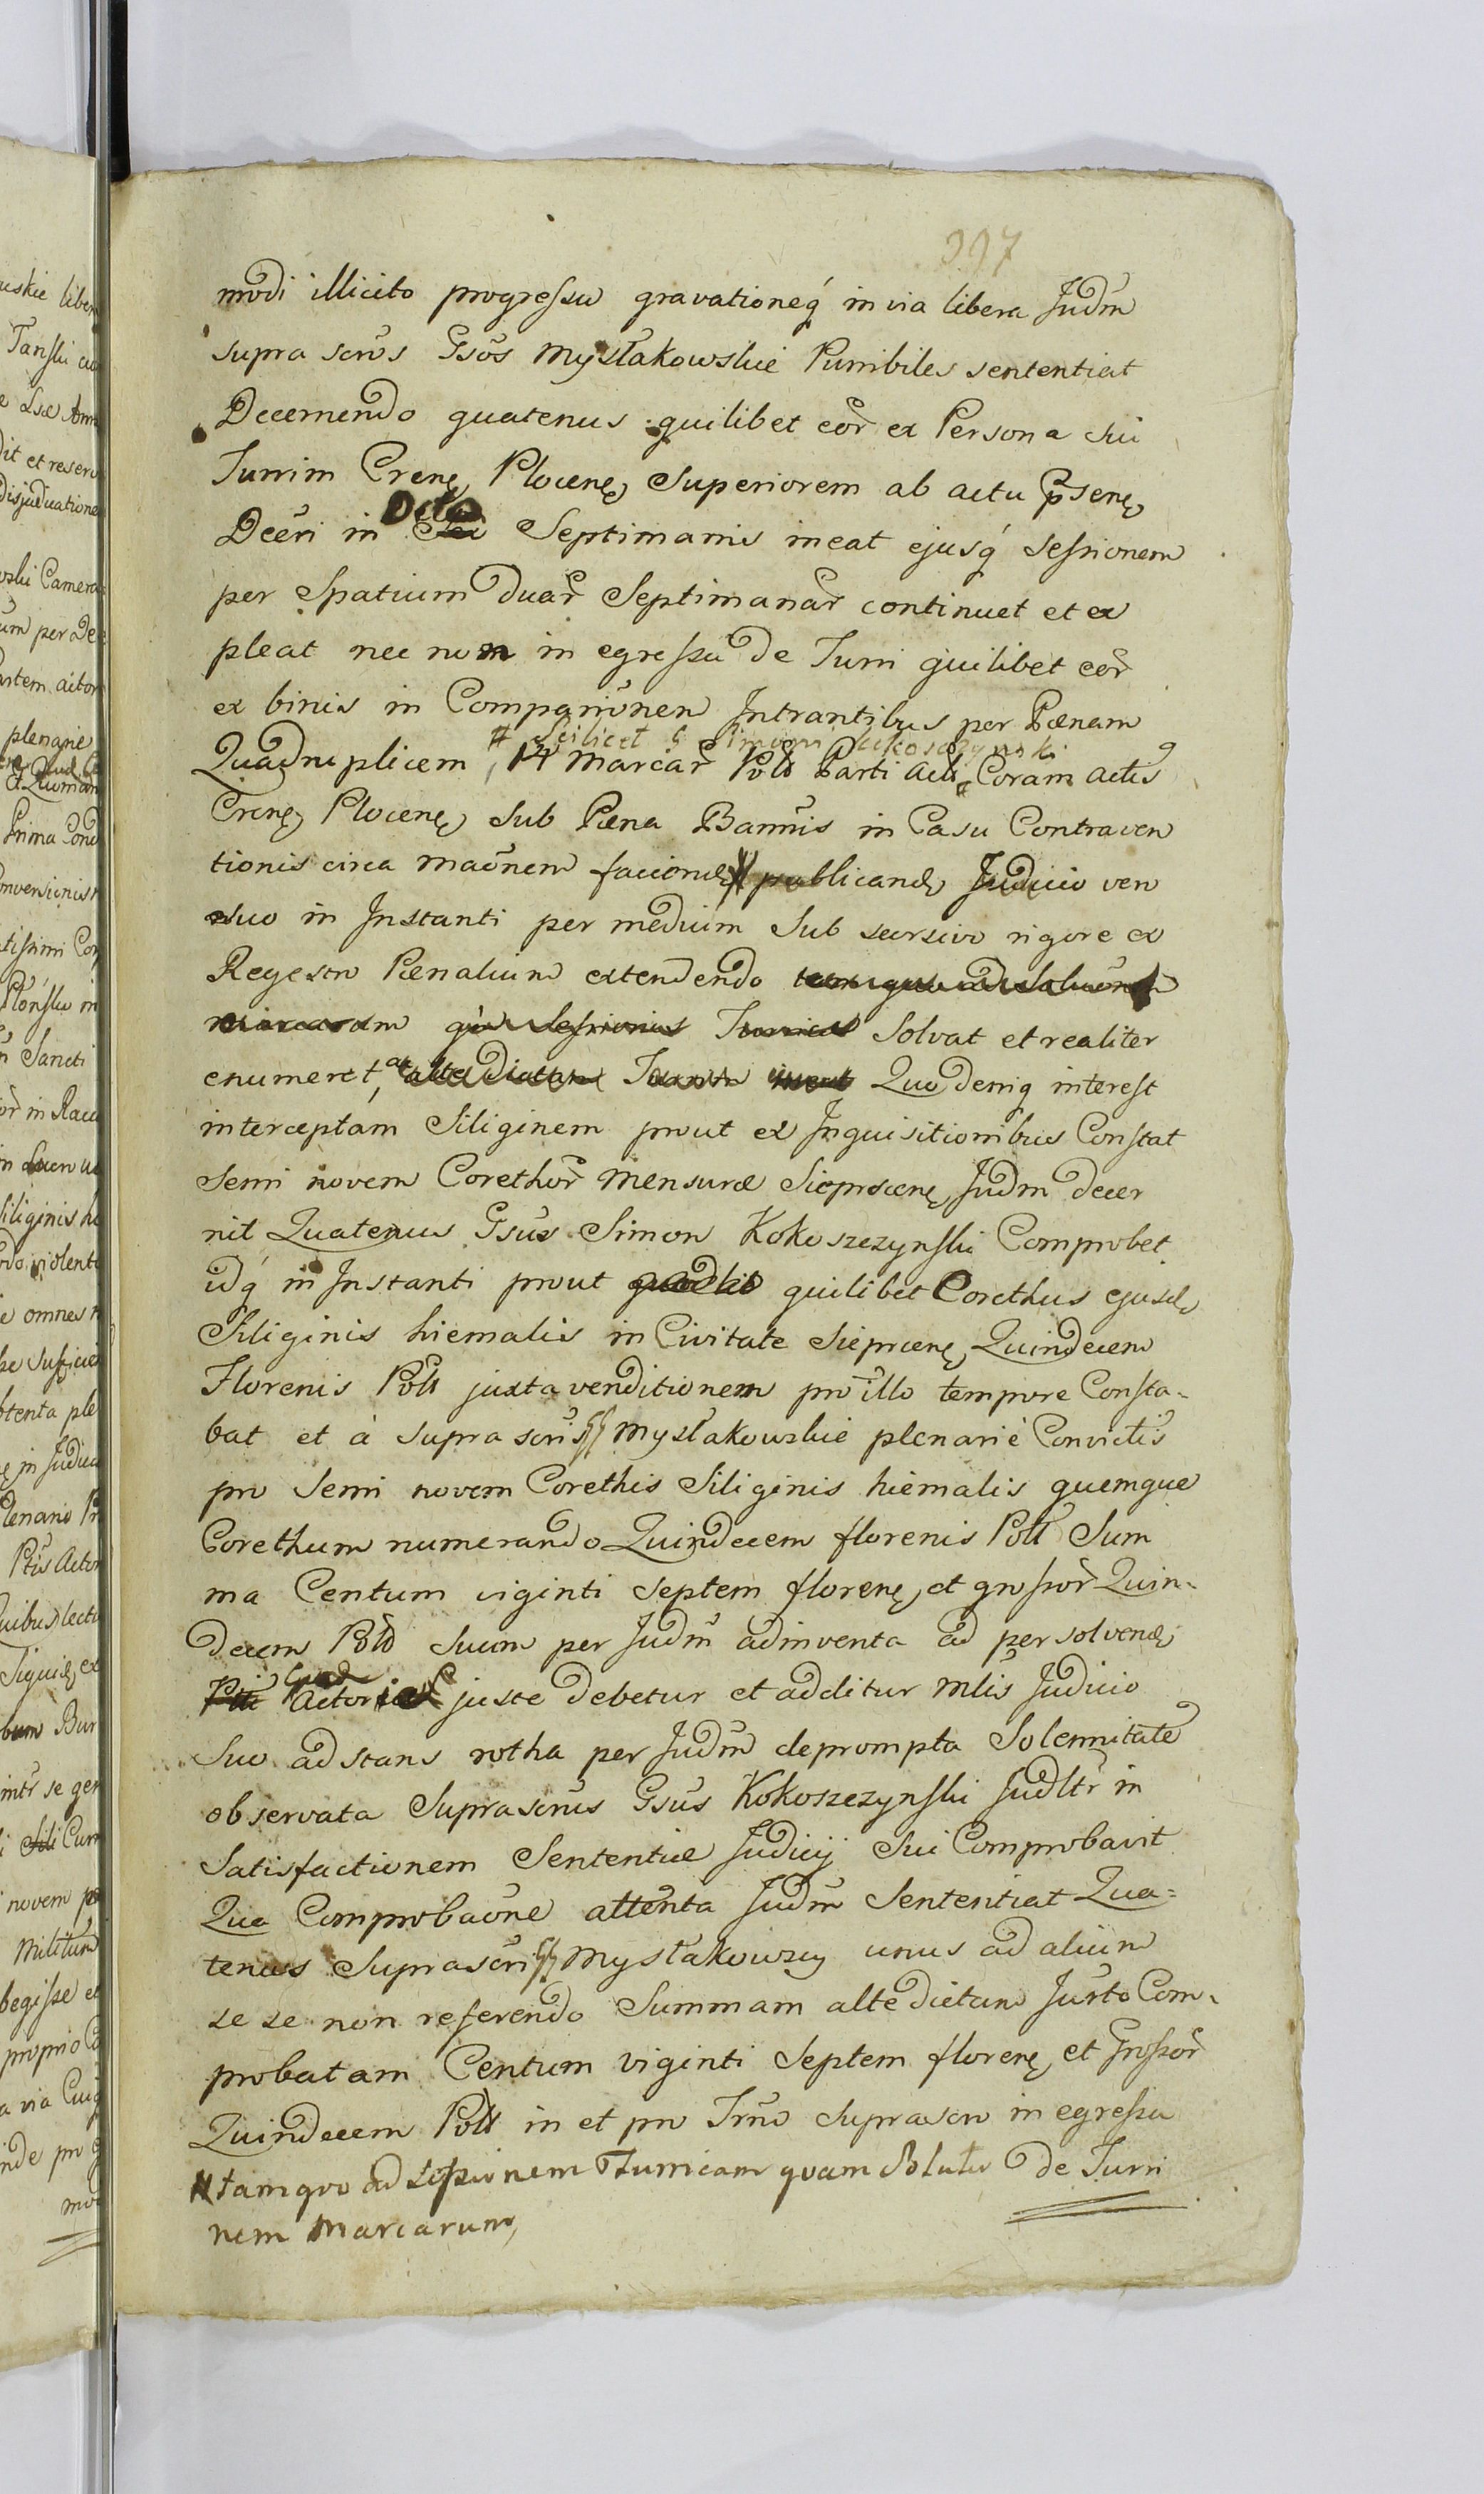 397
modi illicito progressu gravationeq́ in via libera Judm̃
supra scrõs Gsõs Mysłakowskie Punibiles sententiat
Decernendo quatenus quilibet eor̃ ex Persona sui
Turrim Crenę Plocenę Superiorem ab actu p̃senę
Decr̃i in Octo Septimanis ineat ejusq́ sessionem
per Spatium duar̃ Septimanar̃ continuet et ex
pleat nec non in egressu de Turri quilibet eor̃
ex binis in Companiõnem Intrantibus per Pænam
# Scilicet G Simoni Kokoszynski
Quadruplicem, 14 Marcar̃ Poló Parti Acti, Coram actis
Crenę Plocenę sub Pæna Bannis in Casu Contraven
tionis circa maõnem faciendę publicandę Judicio ven
suo in Instanti per medium sub secrsivo rigore ex
Regestro Pænalium extendendo tam quo ad Soluõnem
marcarum q̃ Sessionis Turris Solvat et realiter
enumeret, ac alte dictam Turrim ineat Quo deniq interest
interceptam Siliginem prout ex Inquisitionibus Constat
Semi novem Corethor̃ mensuræ Sieprcenę Judm decer
nit Quatenus Gsus Simon Kokoszczynski Comprobet
idq́ in Instanti prout quodlib quilibet Corethus ejusdę
Siliginis hiemalis in Civitate Sieprcenę Quindecem
Florenis Poll juxta venditionem pro illo tempore Consta-
bat et à supra scris GG Mysłakowskie plenariè Convictis
pro Semi novem Corethis Siliginis hiemalis quemque
Corethum numerando Quindecem florenis Poll Sum
ma Centum viginti septem florenę et grossor̃ Quin-
decem Poló suum per Judm̃ adinventa ad persolvendę
Pti Actoreæ juste debetur et additur Mlis Judicio
Suo adstans rotha per Judm̃ deprompta Solennitate
observata Suprascrus Gsus Kokoszczynski Judltr̃ in
Satisfactionem Sententiæ Judicij sui Comprobavit
Qua Comprobaõne attenta Judm̃ Sententiat Qua-
tenus Suprascri GG Mysłakowscy unus ad alium
se se non referendo Summam alte dictam Jurto Com-
probatam Centum viginti Septem florenę et Grossor̃
Quindecem Poll in et pro Trno suprascro in egressu
# tam quo ad Sessionem Turricam quam Solutio de Turri
nem Marcarum,